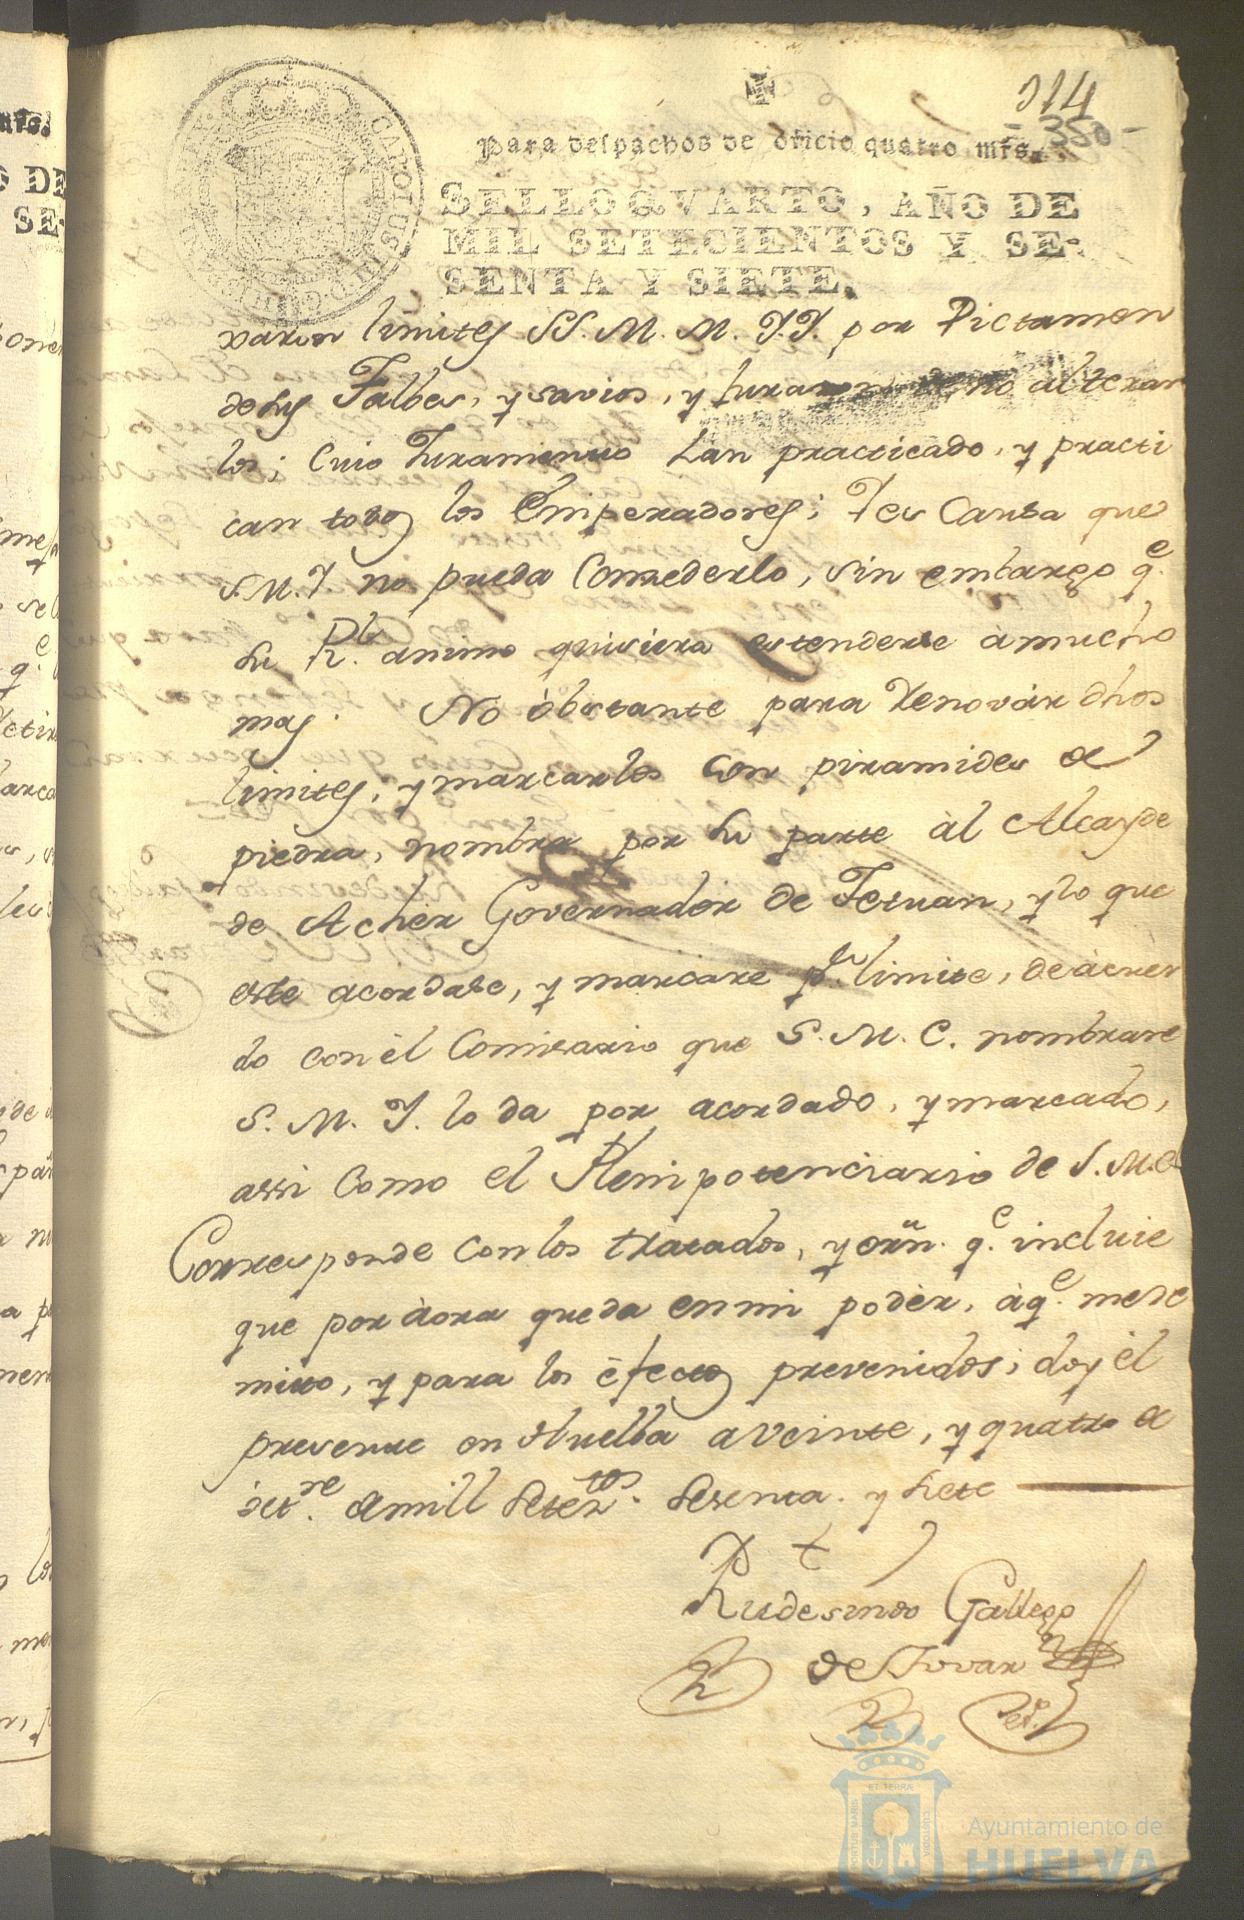 114
- 350 -
Para despachos de oficio quatro mrs.
SELLO QVARTO, AÑO DE
MIL SETECIENTOS Y SE-
SENTA Y SIETE.
CAROLUS III D G HISPANIAR REX
xaron limites SS. M. M. Y.Y. por Dictamen
de sus Talbes, y savios, y juraron de no alterar
los; Cuio Juramento han practicado, y practi
can todos los Emperadores; Y es Causa que
S.M.Y. no pueda Conzederlo, sin embargo q.e
su R.l animo quisiera estenderse à mucho
mas. No óbstante para renovàr dhos
limites, y marcarlos con piramides de
piedra, nombra por su parte àl Alcayde
de Acher Governador de Tetuan, y lo que
este acordase, y marcare p.r limite, de àcuer
do con èl Comisario que S. M. C. nombrare
S. M. Y. lo da por acordado, y marcado,
assi Como el Plenipotenciario de S.M.C
Corresponde con los tratados, y orñ. q.e incluie
que por àora queda en mi podèr, àq.e me re
mito, y para los èfectos prevenidos; doy èl
presente en Huelba a veinte, y quatro de
oct.re de mill setez.tos sesenta y siete
Rudesindo Gallego
de Tovar
Ayuntamiento de
HUELVA